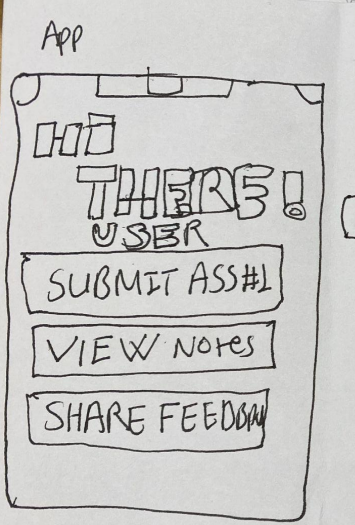 App
HI
THERE!
USER
SUBMIT ASS#1
VIEW Notes
SHARE FEEDBACK